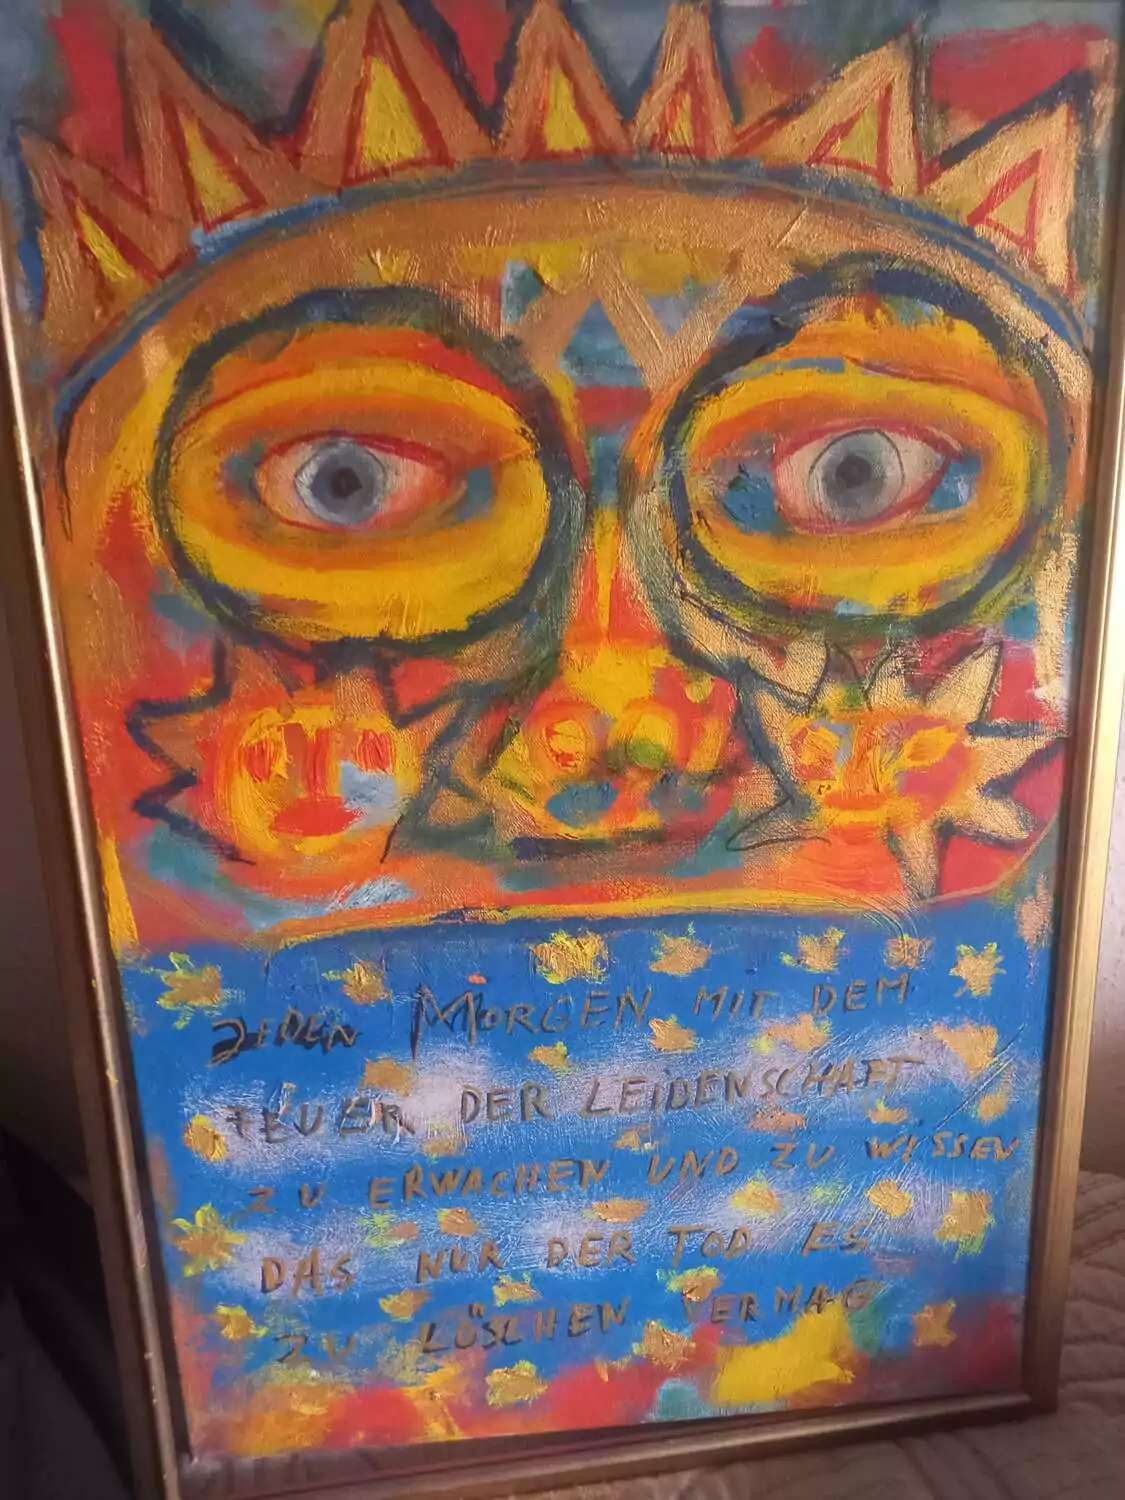 JEDEN MORGEN MIT DEM
FEUER DER LEIDENSCHAFT
ZU ERWACHEN UND ZU WISSEN
DAS NUR DER TOD ES
ZU LÖSCHEN VERMAG